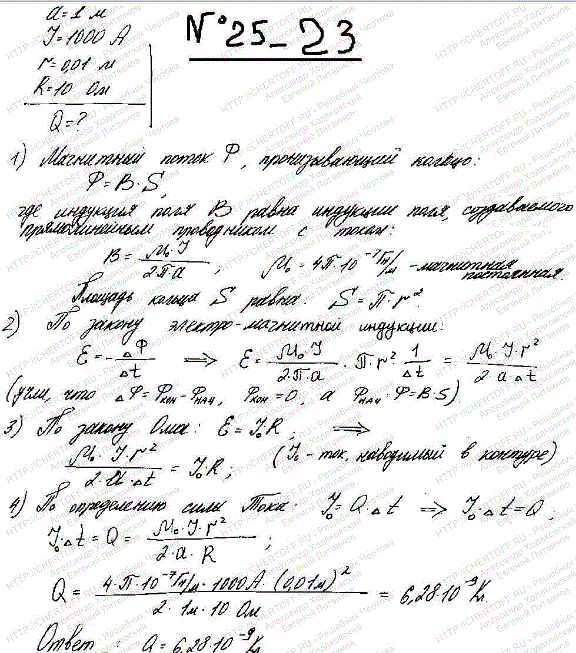 a=1 м
J=1000 А
r=0,01 м
R=10 Ом
Q=?
№25-23
1) Магнитный поток Ф, пронизывающий кольцо:
Ф=B·S,
где индукция поля B равна индукции поля, создаваемого
прямолинейным проводником с током:
B = μ₀·J / 2·π·a ; μ₀ = 4π·10⁻⁷ Гн/м - магнитная постоянная.
Площадь кольца S равна: S=π·r²
2) По закону электро-магнитной индукции:
ε = - ΔФ/Δt ⇒ ε = μ₀·J / 2·π·a · π·r² · 1/Δt = μ₀·J·r² / 2·a·Δt
(учли, что ΔФ=Фкон-Фнач, Фкон=0, а Фнач=Ф=B·S)
3) По закону Ома: ε = J₀R ; ⇒
μ₀·J·r² / 2·a·Δt = J₀R ; (J₀ - ток, наводимый в контуре)
4) По определению силы Тока: J₀=Q·Δt ⇒ J₀·Δt=Q ;
J₀·Δt = Q = μ₀·J·r² / 2·a·R ;
Q = 4·π·10⁻⁷ Гн/м · 1000А · (0,01м)² / 2·1м·10 Ом = 6,28·10⁻⁹ Кл
Ответ: Q = 6,28·10⁻⁹ Кл
HTTP://CHERTOFF.RU - Решебник Чертова
Евгений Питолинов